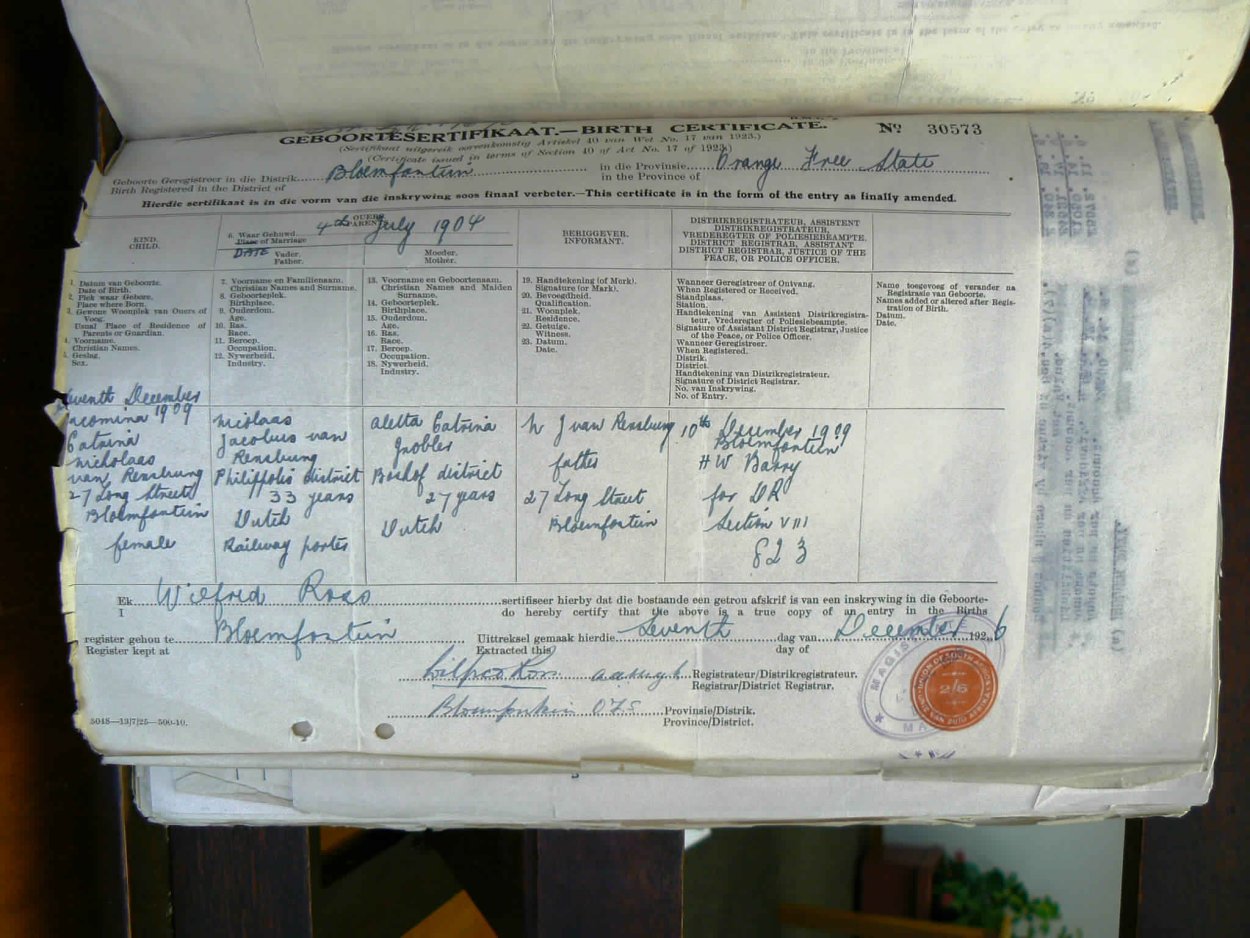 GEBOORTESERTIFIKAAT.—BIRTH CERTIFICATE. No 30573
(Sertifikaat uitgereik ooreenkomstig Artiekel 40 van Wet No. 17 van 1923.)
(Certificate issued in terms of Section 40 of Act No. 17 of 1923.)
Geboorte Geregistreer in die Distrik Bloemfontein in die Provinsie Orange Free State
Birth Registered in the District of in the Province of
Hierdie sertifikaat is in die vorm van die inskrywing soos finaal verbeter.—This certificate is in the form of the entry as finally amended.
KIND.
CHILD.
OUERS
PARENTS
4th July 1904
6. Waar Gehuwd.
Place of Marriage
DATE
Vader.
Father.
Moeder.
Mother.
BERIGGEWER.
INFORMANT.
DISTRIKREGISTRATEUR, ASSISTENT
DISTRIKREGISTRATEUR,
VREDEREGTER OF POLIESIEBEAMPTE.
DISTRICT REGISTRAR, ASSISTANT
DISTRICT REGISTRAR, JUSTICE OF THE
PEACE, OR POLICE OFFICER.
1. Datum van Geboorte.
Date of Birth.
2. Plek waar Gebore.
Place where Born.
3. Gewone Woonplek van Ouers of
Voog.
Usual Place of Residence of
Parents or Guardian.
4. Voorname.
Christian Names.
5. Geslag.
Sex.
7. Voorname en Familienaam.
Christian Names and Surname.
8. Geboorteplek.
Birthplace.
9. Ouderdom.
Age.
10. Ras.
Race.
11. Beroep.
Occupation.
12. Nywerheid.
Industry.
13. Voorname en Geboortenaam.
Christian Names and Maiden
Surname.
14. Geboorteplek.
Birthplace.
15. Ouderdom.
Age.
16. Ras.
Race.
17. Beroep.
Occupation.
18. Nywerheid.
Industry.
19. Handtekening (of Merk).
Signature (or Mark).
20. Bevoegdheid.
Qualification.
21. Woonplek.
Residence.
22. Getuige.
Witness.
23. Datum.
Date.
Wanneer Geregistreer of Ontvang.
When Registered or Received.
Standplaas.
Station.
Handtekening van Assistent Distrikregistra-
teur, Vrederegter of Poliesiebeampte.
Signature of Assistant District Registrar, Justice
of the Peace, or Police Officer.
Wanneer Geregistreer.
When Registered.
Distrik.
District.
Handtekening van Distrikregistrateur.
Signature of District Registrar.
No. van Inskrywing.
No. of Entry.
Name toegevoeg of verander na
Registrasie van Geboorte.
Names added or altered after Regis-
tration of Birth.
Datum.
Date.
December
1909
Catrina
Nicholaas
van Rensburg
27 Long Street
Bloemfontein
female
Nicolaas
Jacobus van
Rensburg
Philippolis district
33 years
Dutch
Railway porter
Aletta Catrina
Grobler
Boshof district
27 years
Dutch
N J van Rensburg
father
27 Long Street
Bloemfontein
10th December 1909
Bloemfontein
H W Barry
for DR
Section VIII
823
Ek Wilfred Ross sertifiseer hierby dat die bostaande een getrou afskrif is van een inskrywing in die Geboorte-
I do hereby certify that the above is a true copy of an entry in the Births
register gehou te Bloemfontein Uittreksel gemaak hierdie Seventh dag van December 192 6
Register kept at Extracted this day of
Registrateur/Distrikregistrateur.
Registrar/District Registrar.
Bloemfontein OFS Provinsie/Distrik.
Province/District.
5048—13/7/25—500-10.
UNION OF SOUTH AFRICA
2/6
UNIE VAN ZUID AFRIKA